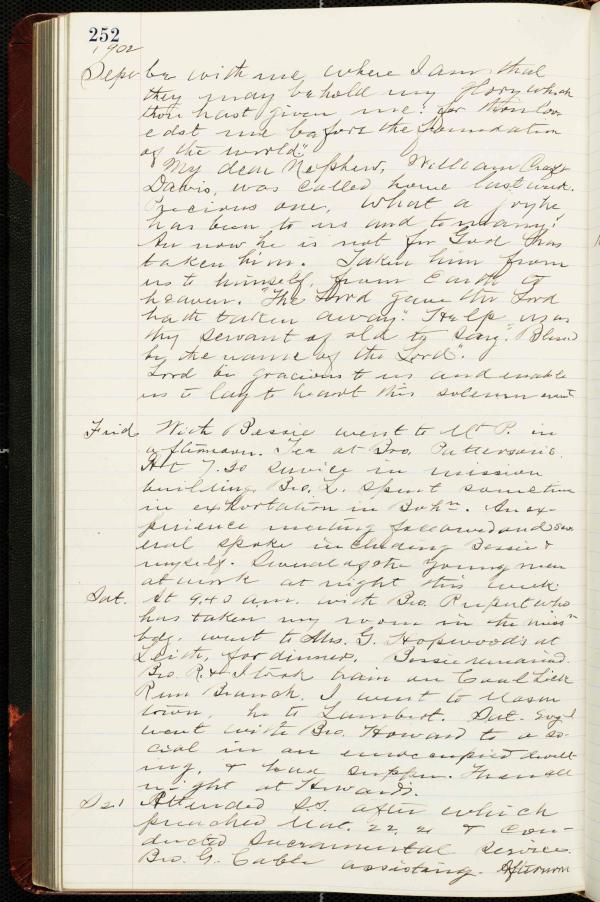 252
1902
Sept be with me where I am that
they may behold my glory which
thou hast given me: for thou lov
edst me before the foundation
of the world."
My dear Nephew, William
Davis, was called home last week.
Precious one, What a joy he
has been to us and to many!
An now he is not for God has
taken him. Taken him from
us to himself, from Earth to
heaven. "The Lord gave the Lord
hath taken away." Help us as
thy servant of old to say: "Blessed
be the name of the Lord".
Lord be gracious to us and enable
us to lay to heart this solemn event
Frid. With Bessie went to Mt P. in
afternoon. Tea at Bro. Pattersons.
At 7.30 service in mission
building. Bro. L. spent sometime
in exhortation in Bohn. An ex-
perience meeting followed and sev
eral spoke including Bessie &
myself. Several of the young men
at work at night this week.
Sat. At 9.40 a.m. with Bro. Ruput who
has taken my room in the missn
bdg. went to Mrs. G. Hopwood's at
Leith, for dinner. Bessie remained.
Bro. R. & I took train on Coal Lick
Run Branch. I went to Mason
town, he to Lambert. Sat. Evg
went with Bro. Howard to a so-
cial in an unoccupied dwell-
ing, & had supper. Then all
night at Howards.
Attended S.S. after which
preached Mat. 22, 21 & con-
ducted Sacramental Service.
Bro. G. Cable assisting. Afternoon